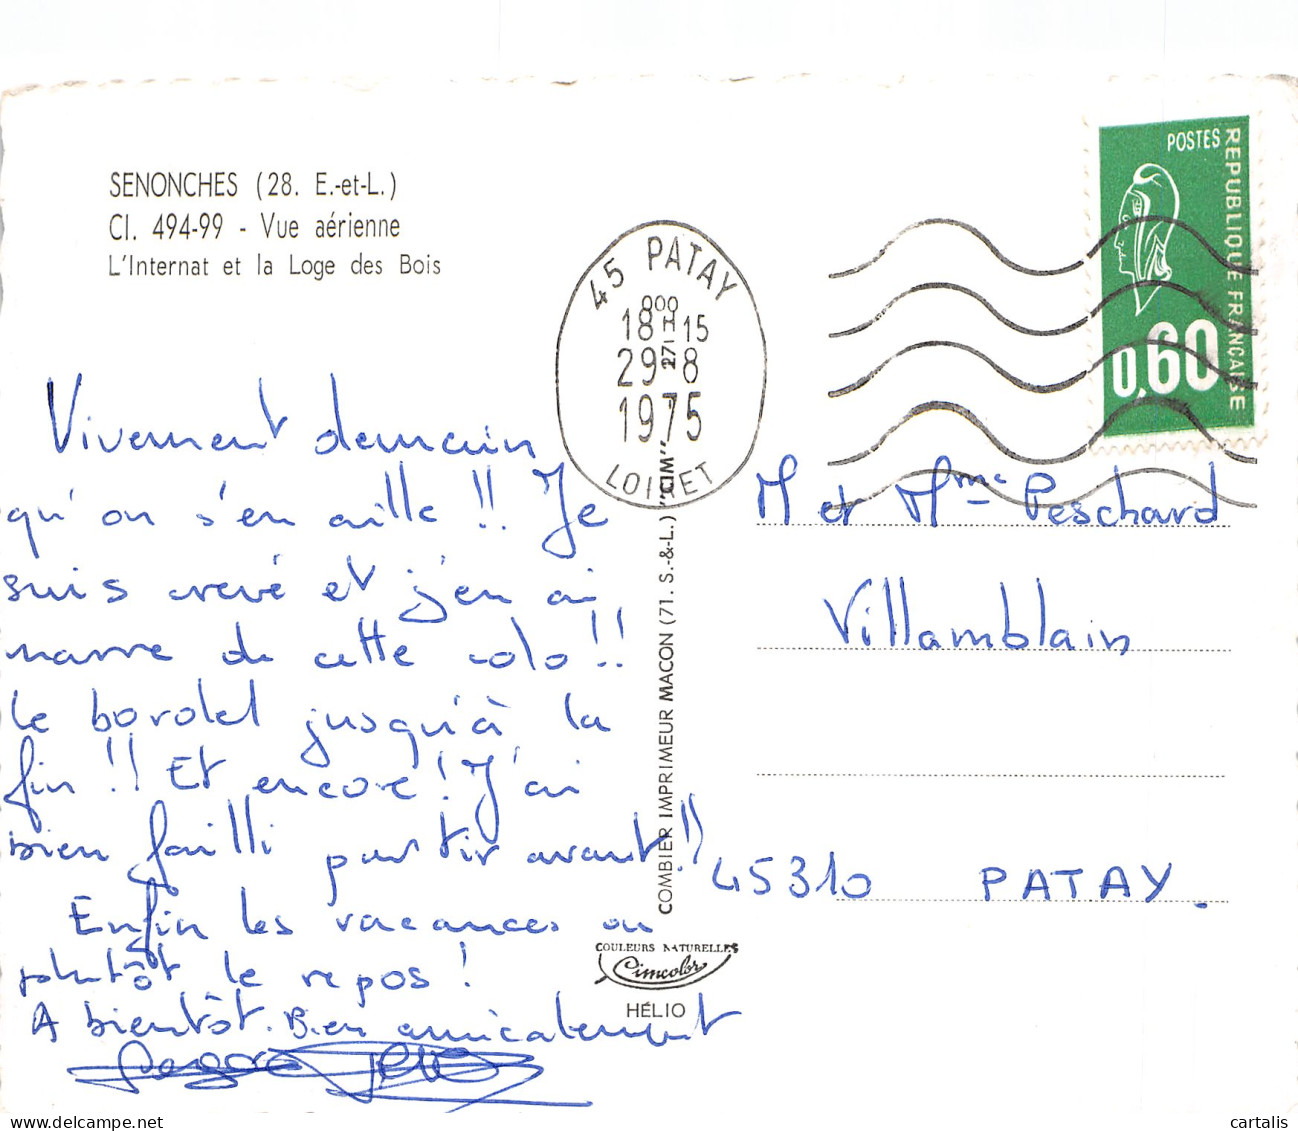 SENONCHES (28. E.-et-L.)
CI. 494-99 - Vue aérienne
L'Internat et la Loge des Bois
POSTES
REPUBLIQUE FRANÇAISE
0,60
45 PATAY
18H15
29-8
1975
LOIRET
Vivement demain
qu'on s'en aille !! Je
suis crevé et j'en ai
marre de cette colo !!
le bordel jusqu'à la
fin !! Et encore ! J'ai
bien failli partir avant !!
Enfin les vacances ou
plutôt le repos !
A bientôt. Bien amicalement
M et Mme Peschard
Villamblain
45310 PATAY.
COMBIER IMPRIMEUR MACON (71. S.-&-L.) "CIM"
COULEURS NATURELLES
Cimcolor
HÉLIO
delcampe.net
cartalis